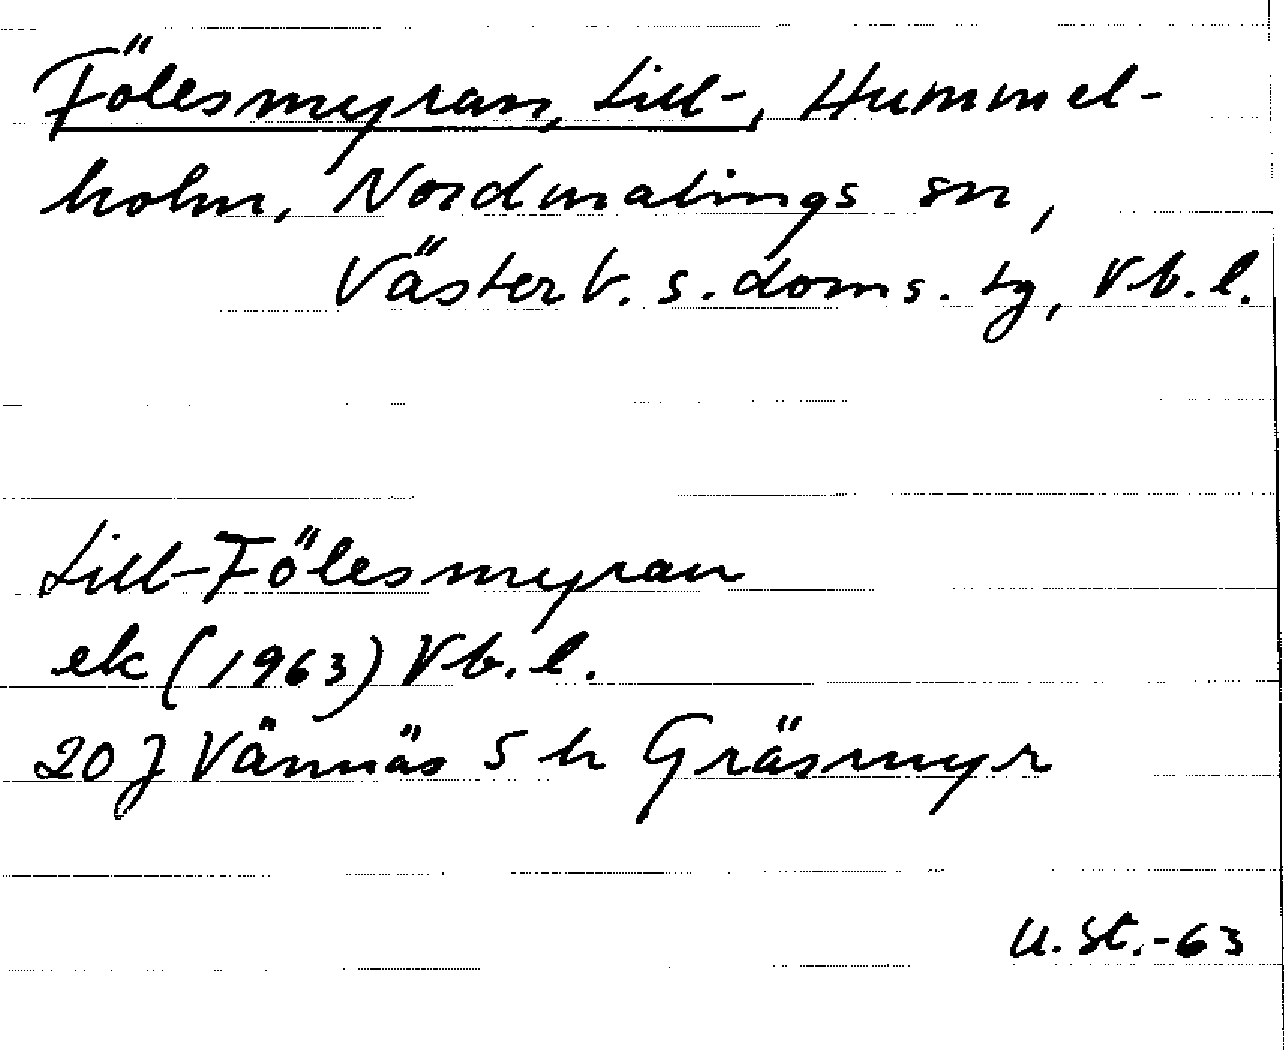 Fölesmyran, Lill-, Hummel-
holm, Nordmalings sn,
Västerb. s. doms. tg, Vb. l.
Lill-Fölesmyran
ek (1963) Vb. l.
20 J Vännäs 5 h Gräsmyr
U. St. -63